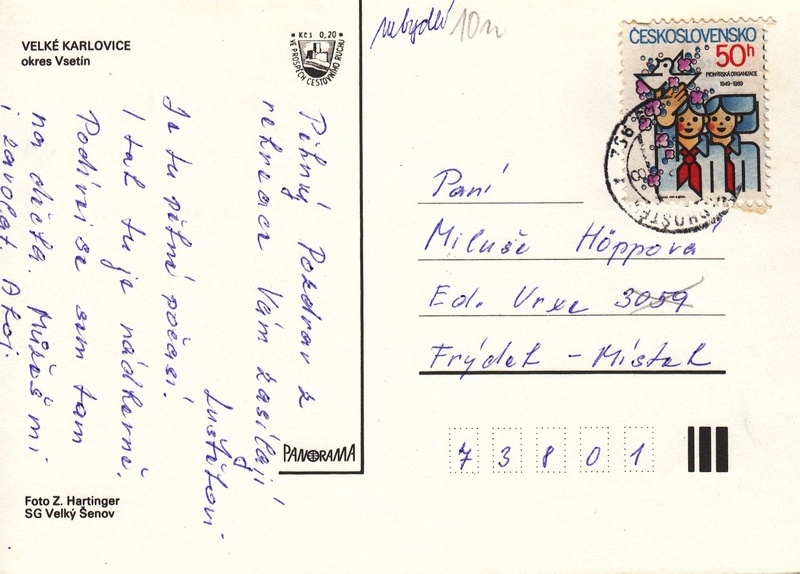 VELKÉ KARLOVICE
okres Vsetín
Kčs 0,20
VE PROSPĚCH CESTOVNÍHO RUCHU
Pěkný Pozdrav z
rekreace Vám zasílají
Luštětovi
Je tu pěkné počasí.
I tak tu je nádherně.
Podívej se sem tam
na děcka. Můžeš mi
i zavolat. Ahoj.
PANORAMA
Foto Z. Hartinger
SG Velký Šenov
nebydlí 10n
ČESKOSLOVENSKO
50h
PIONÝRSKÁ ORGANIZACE
1949-1989
756
Paní
Miluše Höppová
Ed. Urxe 3059
Frýdek - Místek
73801